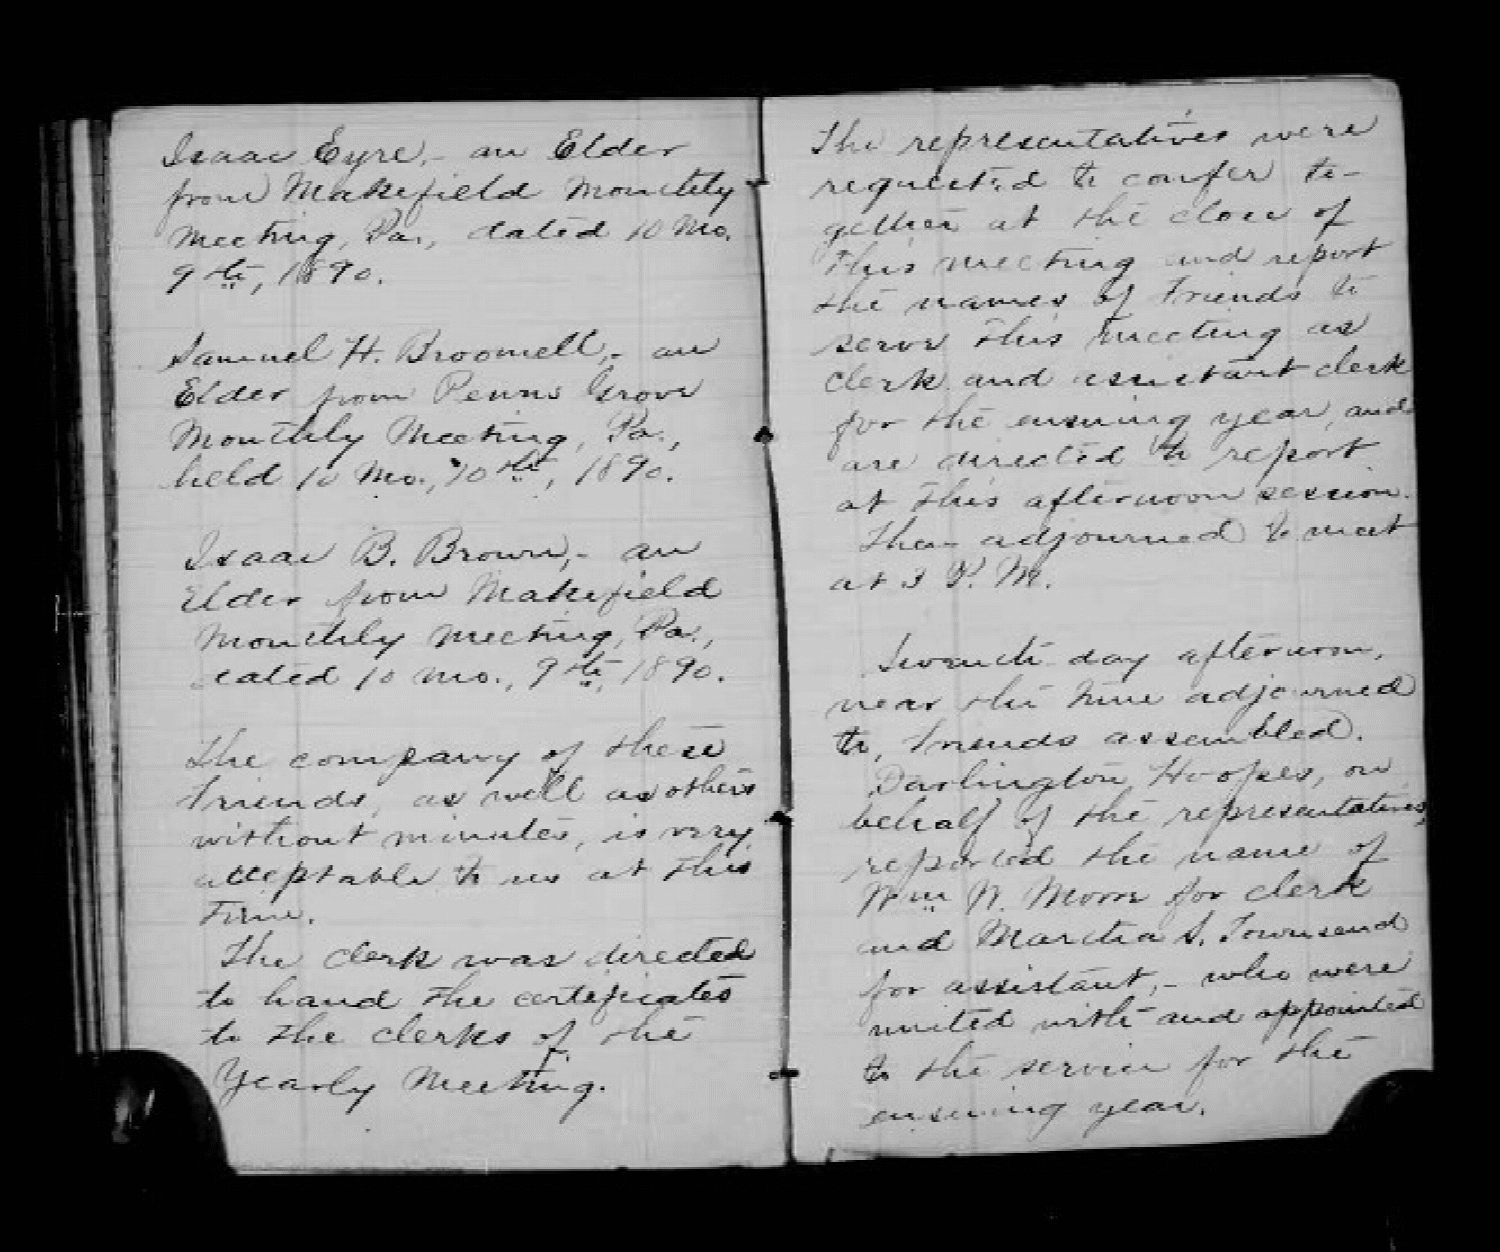 Isaac Eyre,- an Elder
from Makefield Monthly
Meeting, Pa., dated 10 Mo.
9th, 1890.
Samuel H. Broomell,- an
Elder from Penns Grove
Monthly Meeting, Pa.,
held 10 Mo., 10th, 1890.
Isaac B. Brown,- an
Elder from Makefield
Monthly Meeting, Pa.,
dated 10 Mo., 9th, 1890.
The company of these
Friends, as well as others
without minutes, is very
acceptable to us at this
time.
The clerk was directed
to hand the certificates
to the clerks of the
Yearly Meeting.
The representatives were
requested to confer to-
gether at the close of
this meeting and report
the names of Friends to
serve this meeting as
clerk and assistant clerk
for the ensuing year, and
are directed to report
at this afternoon session.
Then adjourned to meet
at 3 P.M.
Seventh-day afternoon,
near the time adjourned
to, Friends assembled.
Darlington Hoopes, on
behalf of the representatives,
reported the name of
Wm W. Moore for clerk
and Martha S. Townsend
for assistant,- who were
united with and appointed
to the service for the
ensuing year.